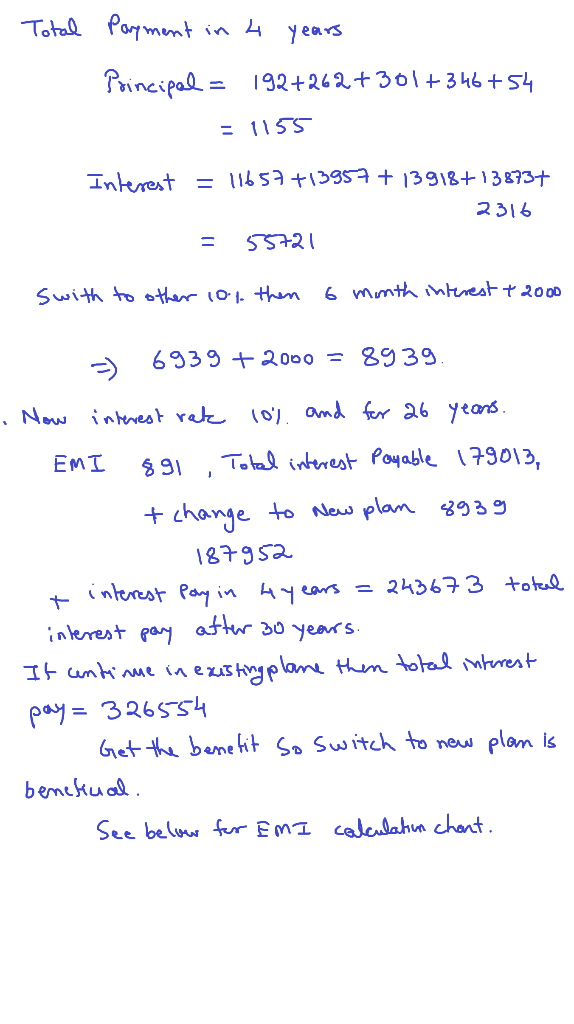 Total Payment in 4 years
Principal = 192+262+301+346+54
= 1155
Interest = 11657+13957+13918+13873+
2316
= 55721
Swith to other 10%. then 6 month interest + 2000
⇒ 6939 + 2000 = 8939.
. Now interest rate 10%. and for 26 years.
EMI 891, Total interest Payable 179013,
+ change to New plan 8939
187952
+ interest Pay in 4 years = 243673 total
interest pay after 30 years.
If continue in existing plane then total interest
pay = 326554
Get the benefit So Switch to new plan is
benefiual.
See below for EMI calculation chart.